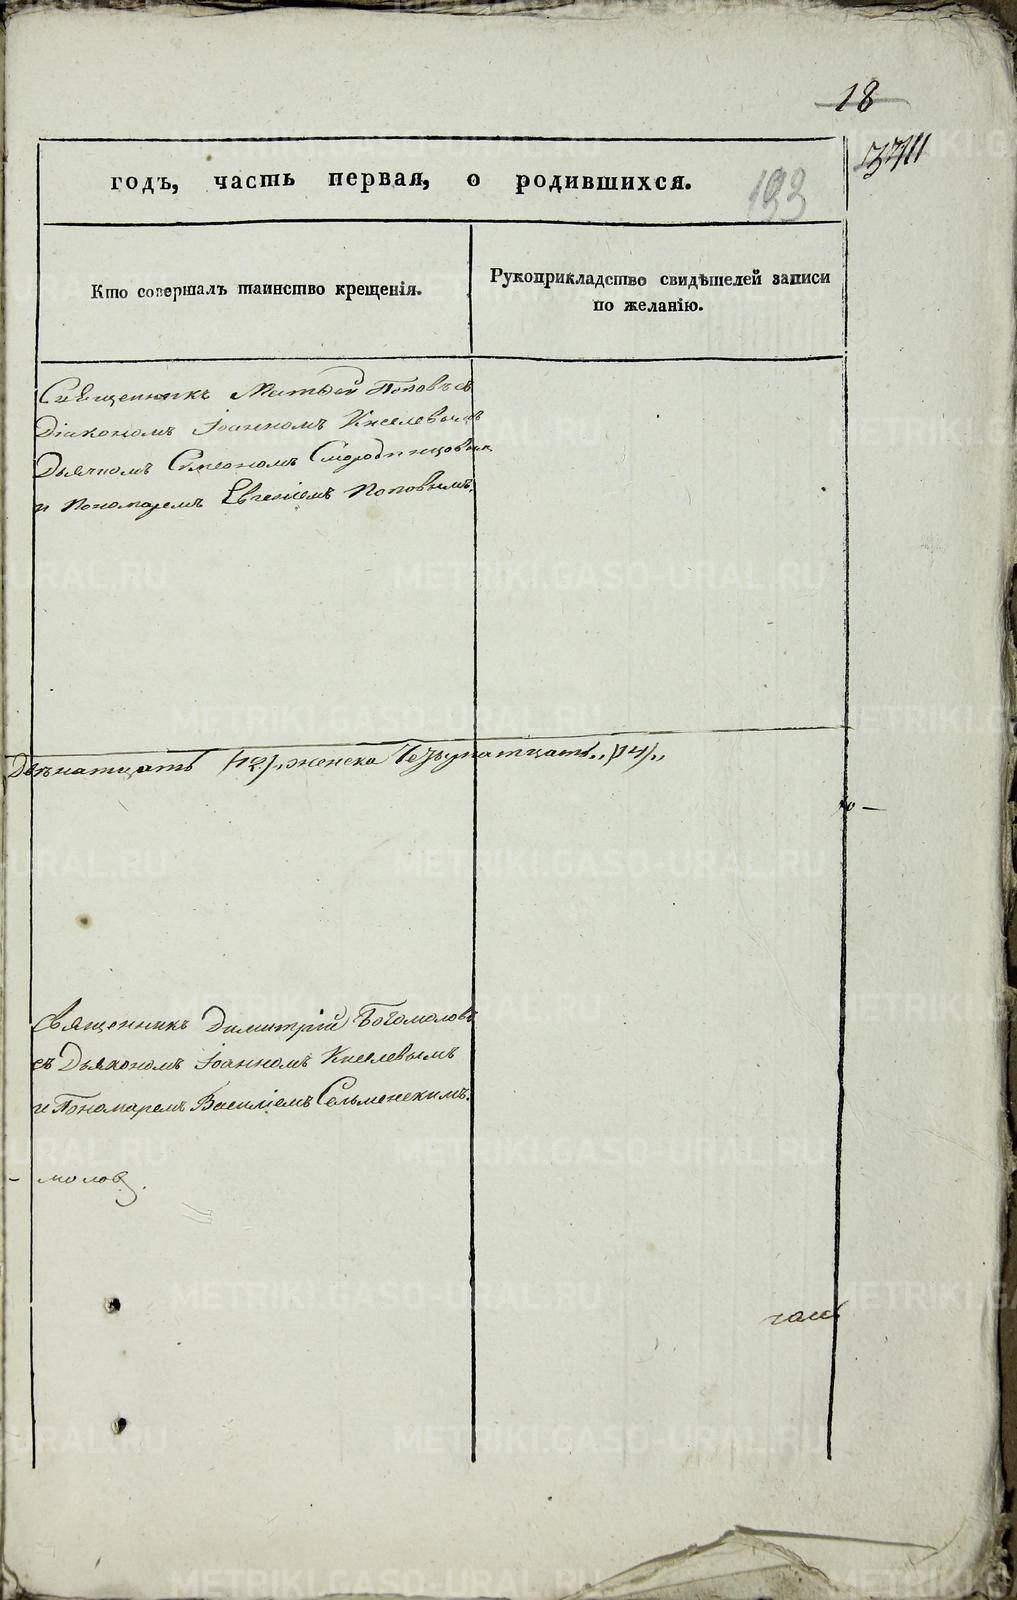 18
193
годъ, часть первая, о родившихся.
Кто совершалъ таинство крещенія.
Рукоприкладство свидѣтелей записи
по желанію.
Священникъ Матѳей Поповъ съ
Діакономъ Іоанномъ Киселевымъ
Дьячкомъ Симеономъ Смородинцовым
и Пономаремъ Евгеніемъ Поповымъ.
Двѣнатцать /12/, женска Четырнатцать „ /14/ „
Священникъ Димитрій Богомоловъ
съ Дьякономъ Іоанномъ Киселевымъ
и Пономаремъ Василіемъ Сельменскимъ.
- моловъ.
часть
METRIKI.GASO-URAL.RU